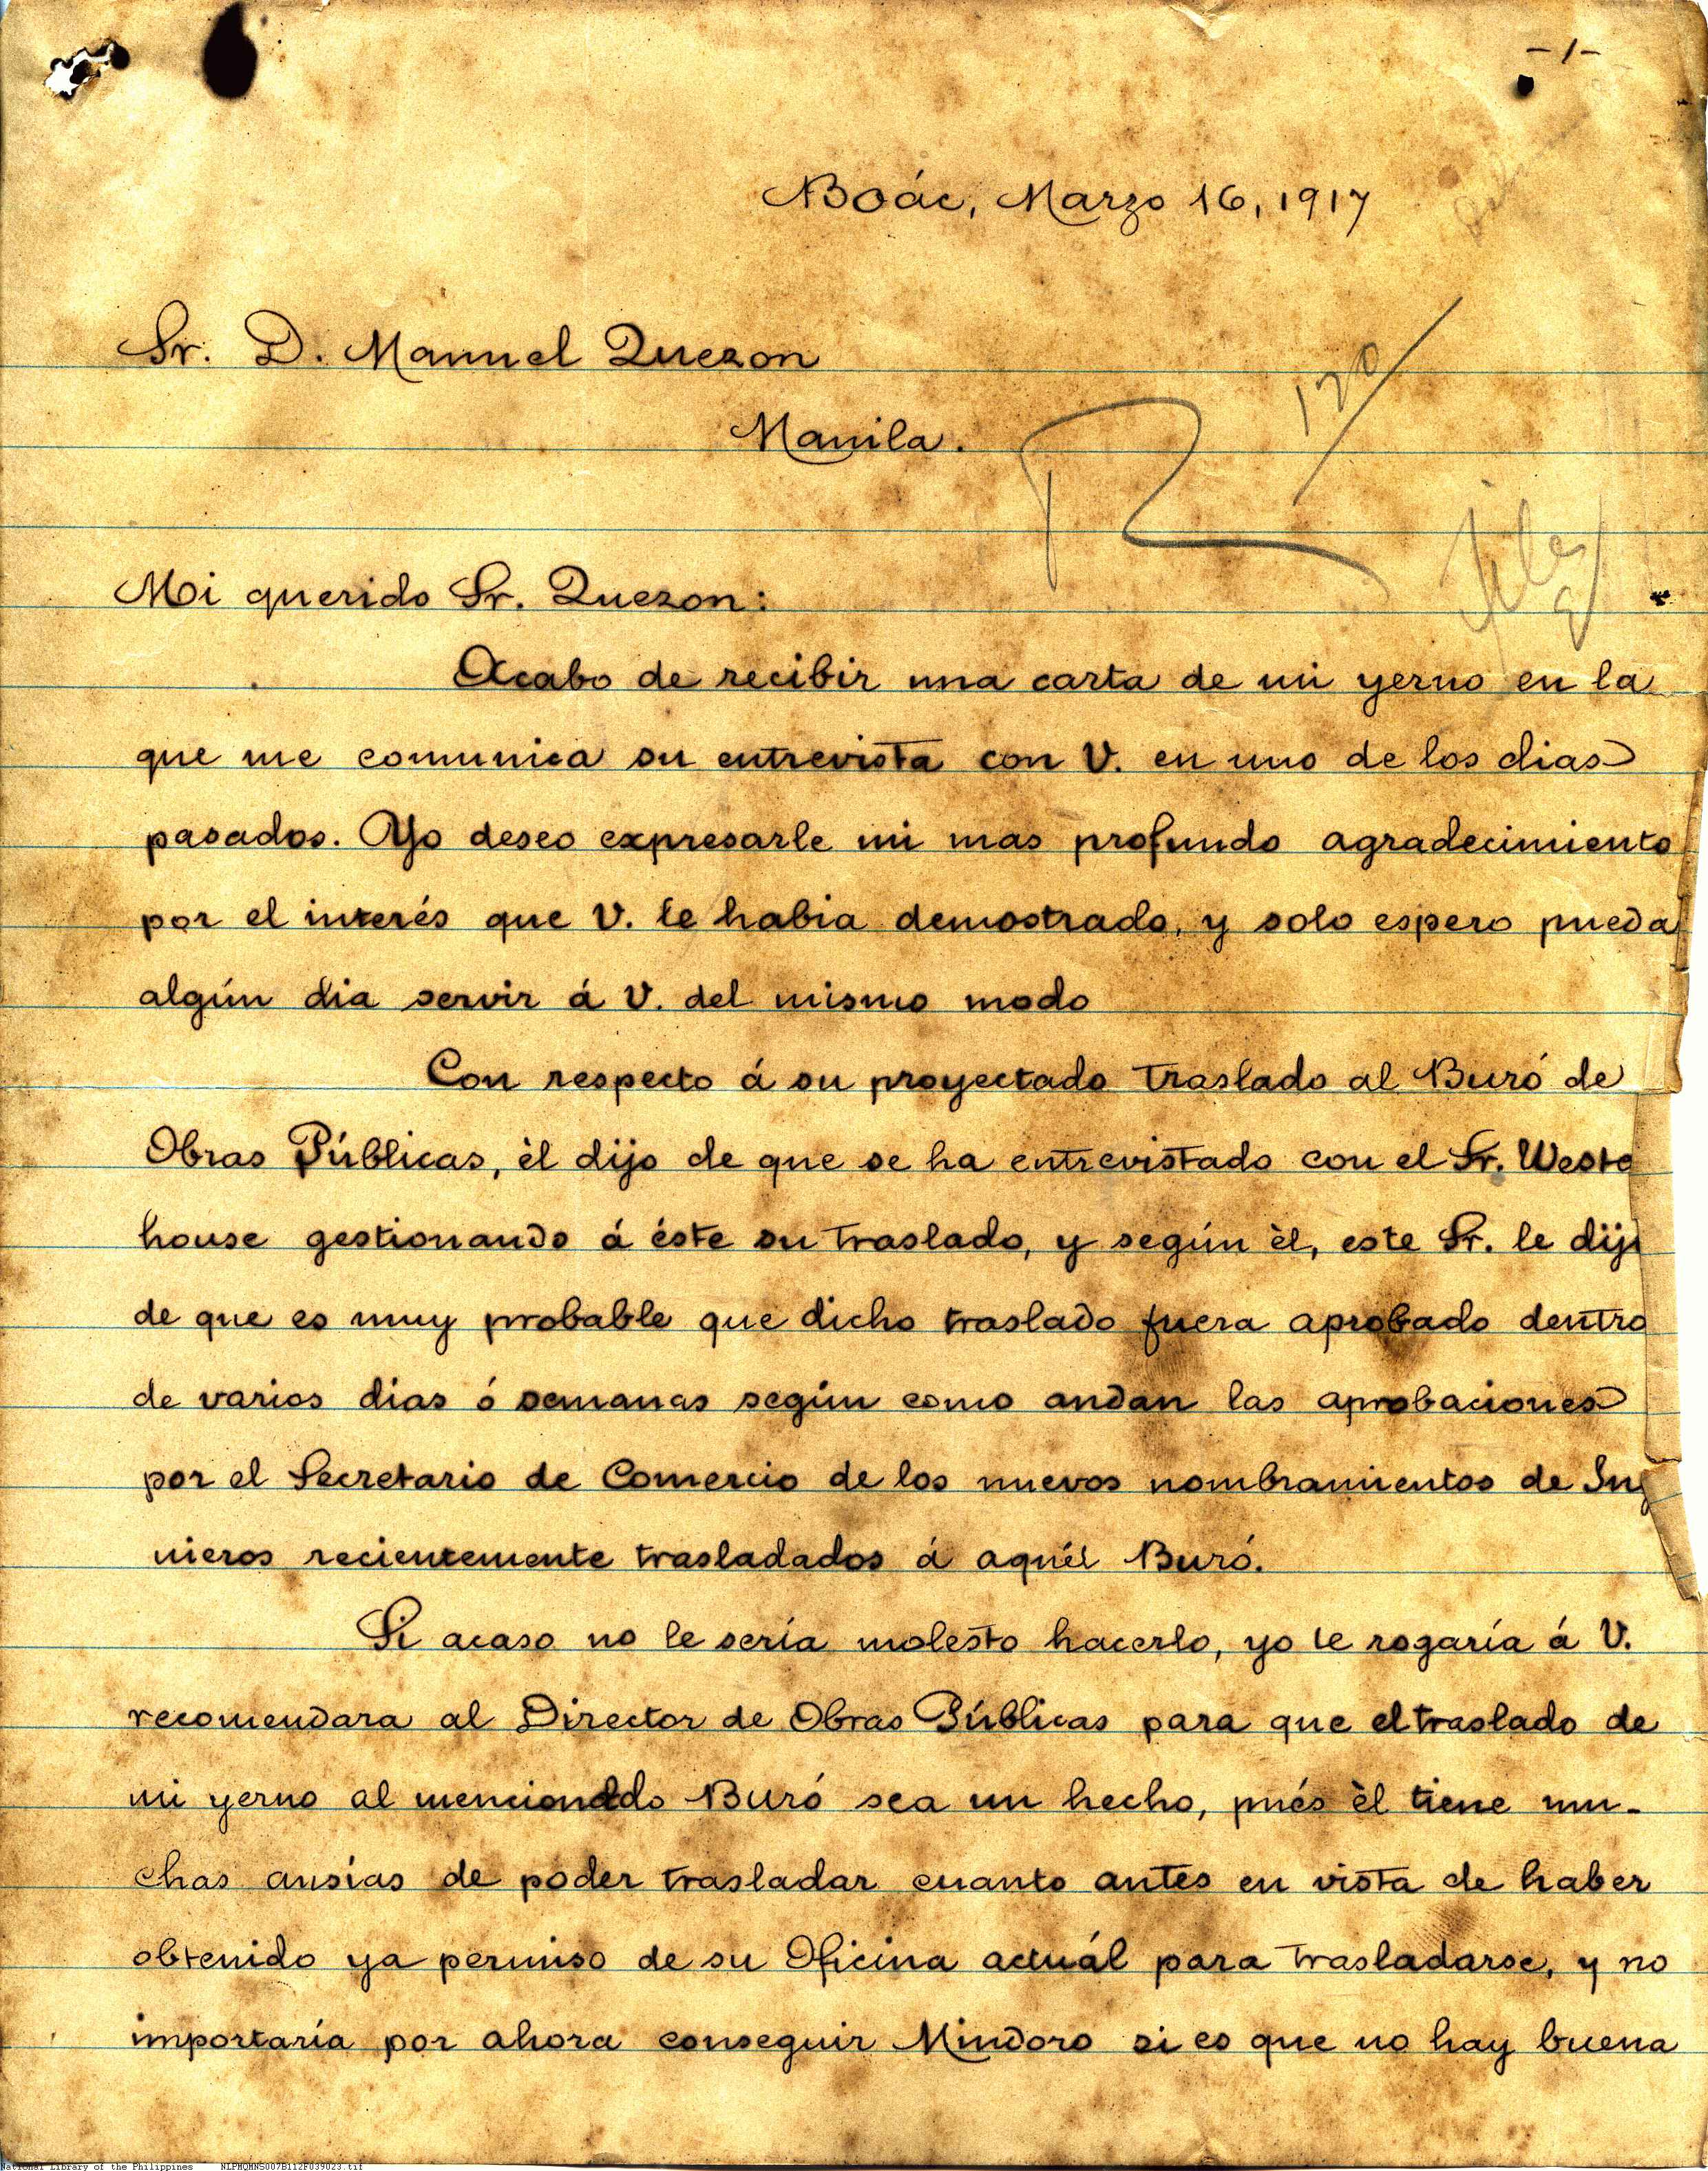 -1-
Boác, Marzo 16, 1917
Sr. D. Manuel Quezon
Manila.
R 120
File
Mi querido Sr. Quezon:
Acabo de recibir una carta de mi yerno en la
que me comunica su entrevista con V. en uno de los dias
pasados. Yo deseo expresarle mi mas profundo agradecimiento
por el interés que V. le habia demostrado, y solo espero pueda
algún dia servir á V. del mismo modo
Con respecto á su proyectado traslado al Buró de
Obras Públicas, èl dijo de que se ha entrevistado con el Sr. Weste
house gestionando á éste su traslado, y según èl, este Sr. le dij
de que es muy probable que dicho traslado fuera aprobado dentro
de varios dias ó semanas según como andan las aprobaciones
por el Secretario de Comercio de los nuevos nombramientos de Ing
nieros recientemente trasladados á aquél Buró.
Si acaso no le sería molesto hacerlo, yo le rogaría á V.
recomendara al Director de Obras Públicas para que el traslado de
mi yerno al mencionado Buró sea un hecho, pués èl tiene mu-
chas ansías de poder trasladar cuanto antes en vista de haber
obtenido ya permiso de su Oficina actuál para trasladarse, y no
importaría por ahora conseguir Mindoro si es que no hay buena
National Library of the Philippines NLPMQMNS007B112F039023.tif